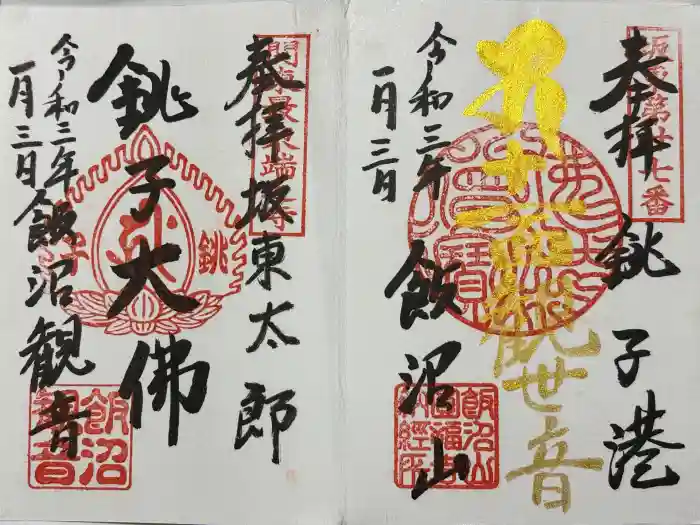 奉拝
銚子港
坂東第廿七番
十一面観世音
飯沼山
令和三年
一月三日
飯沼山
圓福寺
奉拝
坂東太郎
関東最東端
銚子大佛
銚子
令和三年
一月三日
飯沼観音
飯沼
観音